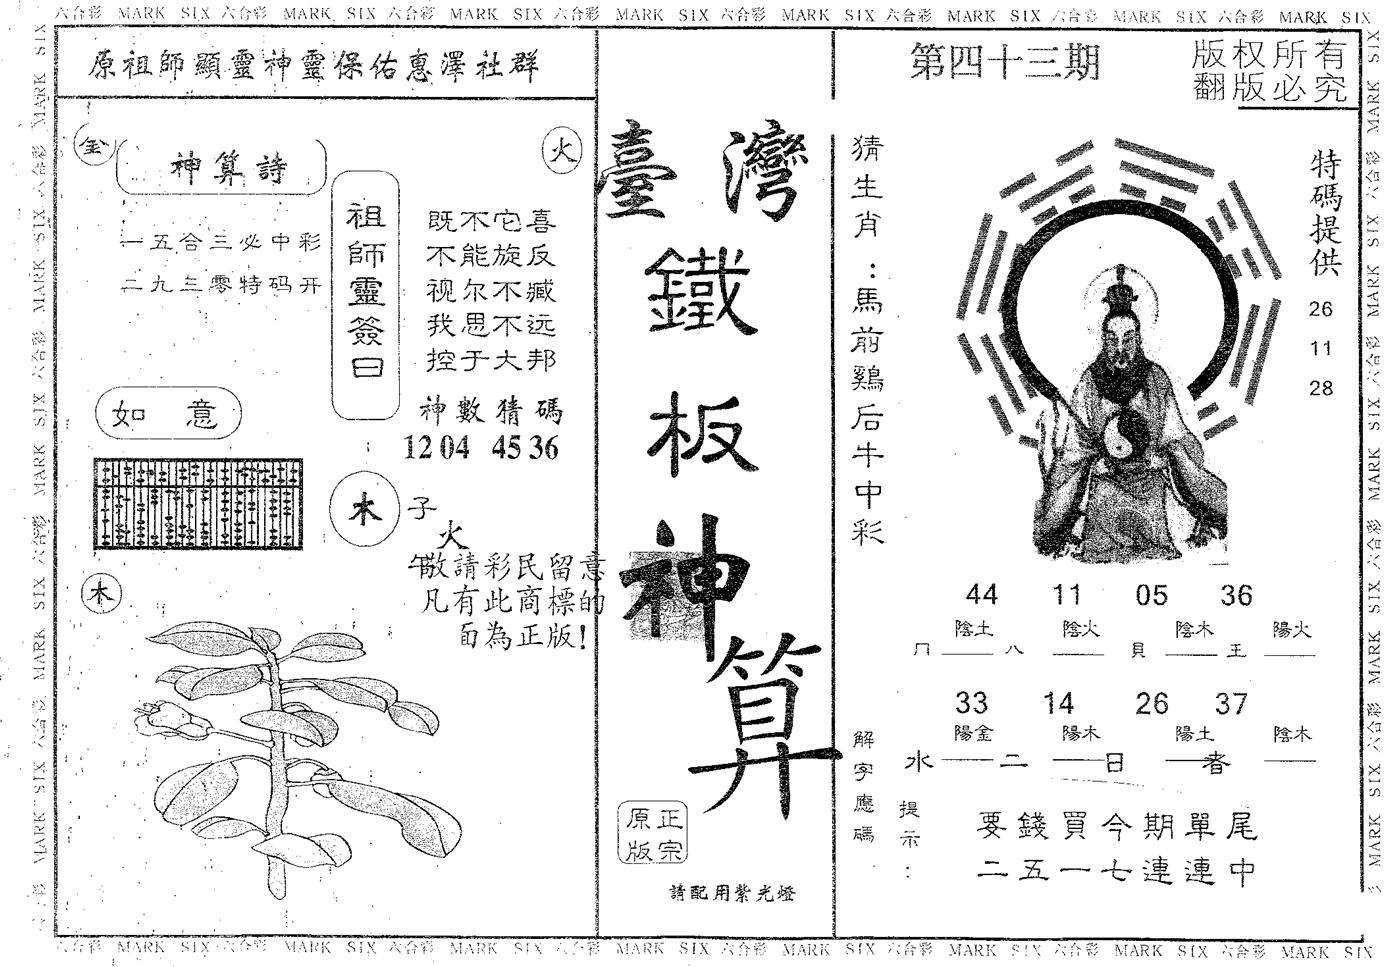 六合彩 MARK SIX 六合彩 MARK SIX 六合彩 MARK SIX 六合彩 MARK SIX 六合彩 MARK SIX 六合彩 MARK SIX 六合彩 MARK SIX 六合彩 MARK SIX
原祖師顯靈神靈保佑惠澤社群
第四十三期
版权所有
翻版必究
金
神算詩
火
一五合三必中彩
二九三零特码开
祖師靈簽曰
既不它喜
不能旋反
视尔不臧
我思不远
控于大邦
神數猜碼
12 04 45 36
如意
木
子
火
午
敬請彩民留意
凡有此商標的
為正版!
木
臺灣
鐵板神算
正宗
原版
請配用紫光燈
猜生肖:馬前鷄后牛中彩
特碼提供
26
11
28
44 11 05 36
陰土 陰火 陰木 陽火
八 貝 王
33 14 26 37
陽金 陽木 陽土 陰木
水 二 日 者
解字應碼
提示:
要錢買今期單尾
二五一七連連中
六合彩 MARK SIX 六合彩 MARK SIX 六合彩 MARK SIX 六合彩 MARK SIX 六合彩 MARK SIX 六合彩 MARK SIX 六合彩 MARK SIX 六合彩 MARK SIX